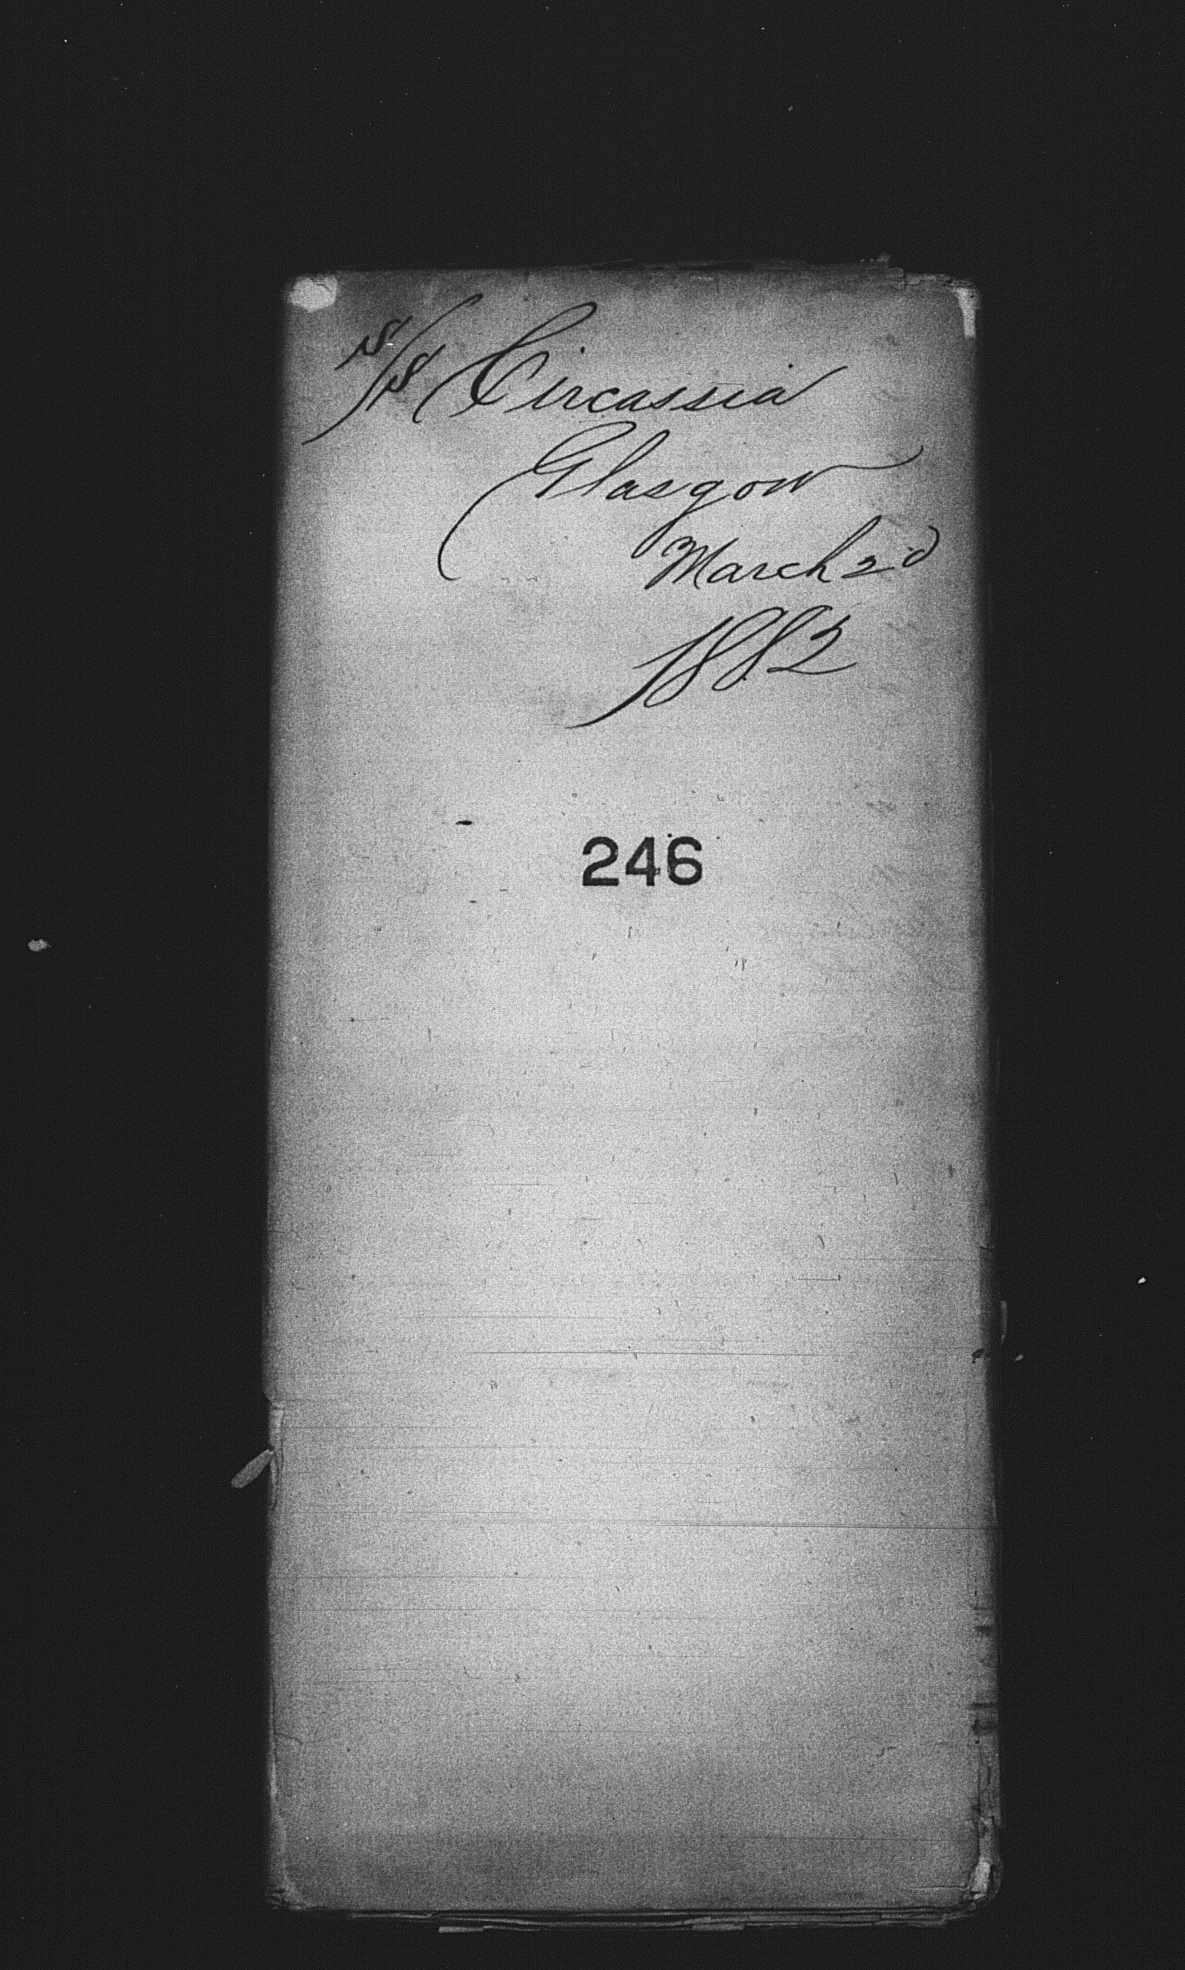 S/S Circassia
Glasgow
March 2d
1882
246